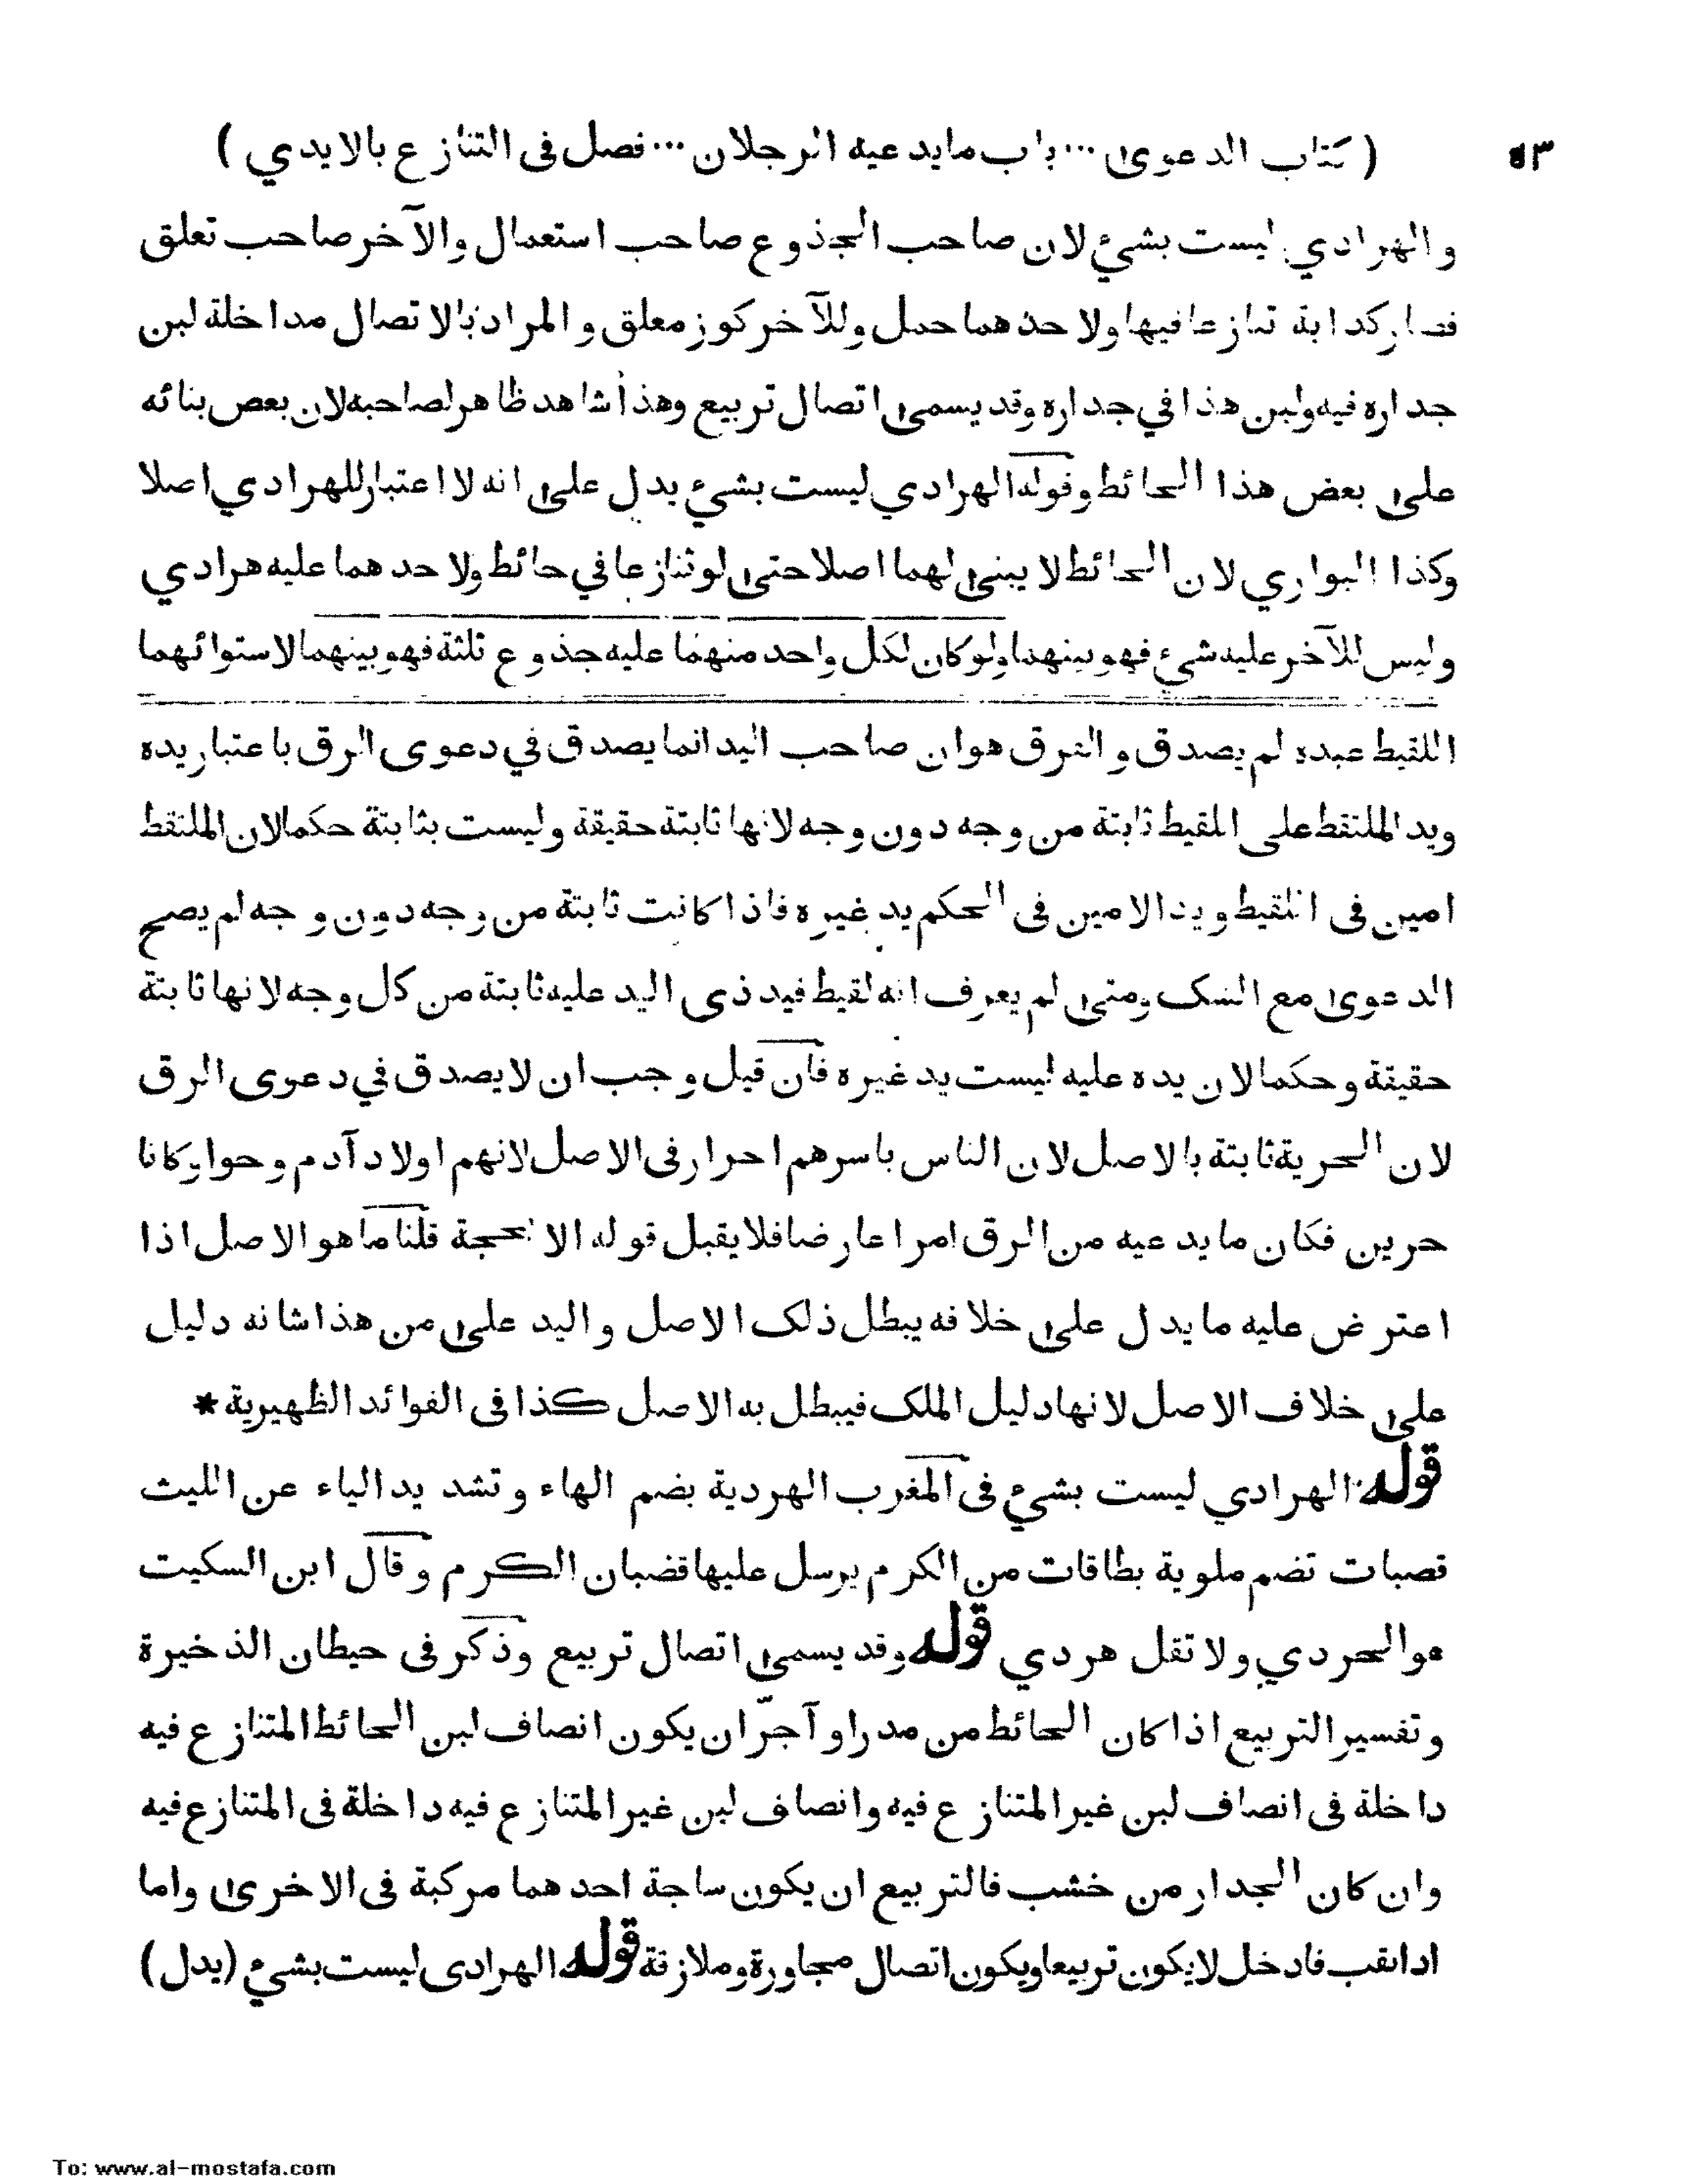 ( كتاب الدعوى ... باب ما يدعيه الرجلان ... فصل فى التنازع بالايدي ) ٥٣
والهرادي ليست بشئ لان صاحب الجذوع صاحب استعمال والآخر صاحب تعلق
فصار كدابة تنازعا فيها ولاحدهما حمل وللآخر كوز معلق والمراد بالاتصال مداخلة لبن
جداره فيه ولبن هذا في جداره وقد يسمى اتصال تربيع وهذا شاهد ظاهر لصاحبه لان بعض بنائه
على بعض هذا الحائط وقوله الهرادي ليست بشئ يدل على انه لا اعتبار للهرادي اصلا
وكذا البواري لان الحائط لا يبنى لهما اصلا حتى لو تنازعا في حائط ولاحدهما عليه هرادي
وليس للآخر عليه شيء فهو بينهما ولو كان لكل واحد منهما عليه جذوع ثلثة فهو بينهما لاستوائهما
اللقيط عبده لم يصدق والفرق هو ان صاحب اليد انما يصدق في دعوى الرق باعتبار يده
ويد الملتقط على اللقيط ثابتة من وجه دون وجه لانها ثابتة حقيقة وليست بثابتة حكما لان الملتقط
امين فى اللقيط ويد الامين فى الحكم يد غيره فاذا كانت ثابتة من وجه دون وجه لم يصح
الدعوى مع الشك ومتى لم يعرف انه لقيط فيد ذى اليد عليه ثابتة من كل وجه لانها ثابتة
حقيقة وحكما لان يده عليه ليست يد غيره فان قيل وجب ان لا يصدق في دعوى الرق
لان الحرية ثابتة بالاصل لان الناس باسرهم احرار فى الاصل لانهم اولاد آدم وحوا وكانا
حرين فكان ما يدعيه من الرق امرا عارضا فلا يقبل قوله الا بحجة قلنا ما هو الاصل اذا
اعترض عليه ما يدل على خلافه يبطل ذلك الاصل واليد على من هذا شانه دليل
على خلاف الاصل لانها دليل الملك فيبطل به الاصل كذا فى الفوائد الظهيرية *
قوله الهرادي ليست بشئ فى المغرب الهردية بضم الهاء وتشديد الياء عن الليث
قصبات تضم ملوية بطاقات من الكرم يرسل عليها قضبان الكرم وقال ابن السكيت
هو الحردي ولا تقل هردي قوله وقد يسمى اتصال تربيع وذكر فى حيطان الذخيرة
وتفسير التربيع اذا كان الحائط من مدر او آجرّ ان يكون انصاف لبن الحائط المتنازع فيه
داخلة فى انصاف لبن غير المتنازع فيه وانصاف لبن غير المتنازع فيه داخلة فى المتنازع فيه
وان كان الجدار من خشب فالتربيع ان يكون ساجة احدهما مركبة فى الاخرى واما
اذا نقب فادخل لا يكون تربيعا ويكون اتصال مجاورة وملازقة قوله الهرادى ليست بشئ (يدل)
To: www.al-mostafa.com